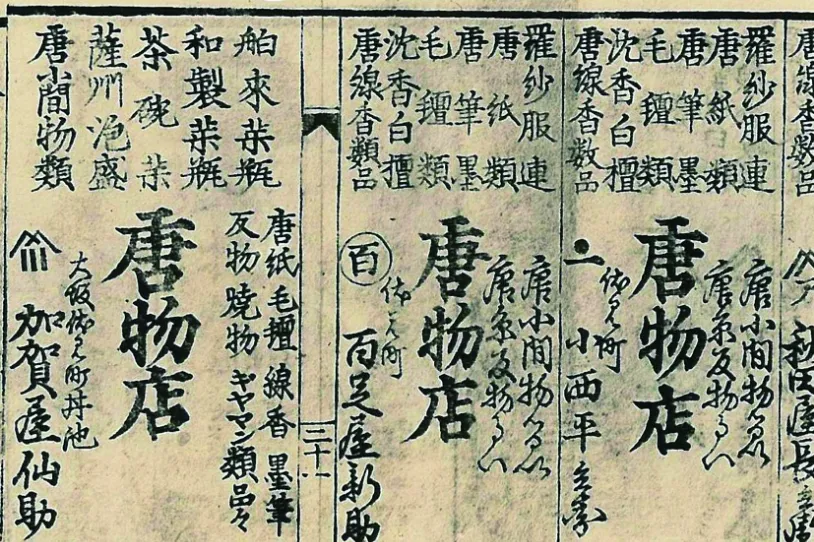 羅紗服連
唐紙類
唐筆墨
毛氈類
沈香白檀
唐線香数品
唐小間物るい
唐糸反物るい
唐物店
伏見町
小西平
羅紗服連
唐紙類
唐筆墨
毛氈類
沈香白檀
唐線香類品
唐小間物るい
唐糸反物るい
唐物店
伏見町
百
百足屋新助
三十一
舶來
和製
茶碗
薩州泡盛
唐小間物類
唐紙毛氈線香墨筆
反物焼物キヤマン類品々
唐物店
大坂伏見町丼池
加賀屋仙助